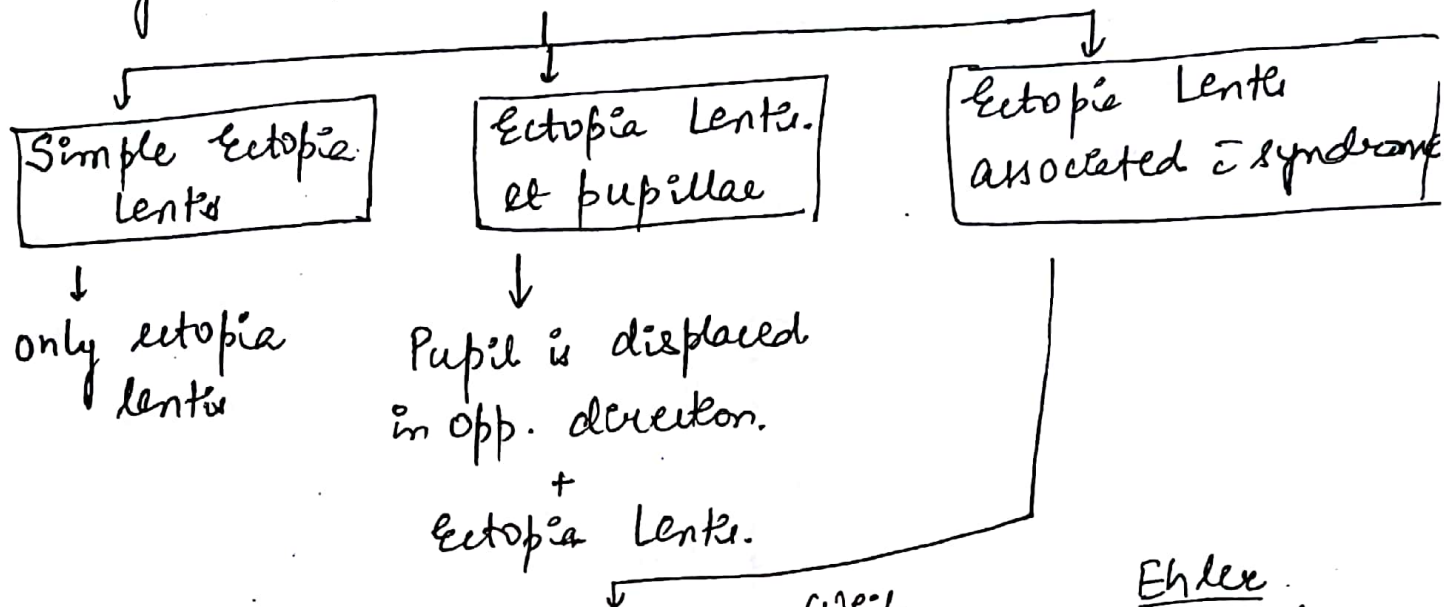 Simple Ectopia
Lentis
Ectopia Lentis.
et pupillae
Ectopia Lentis
associated c̄ syndrome
only ectopia
lentis
Pupil is displaced
in opp. direction.
+
Ectopia Lentis.
Ehler